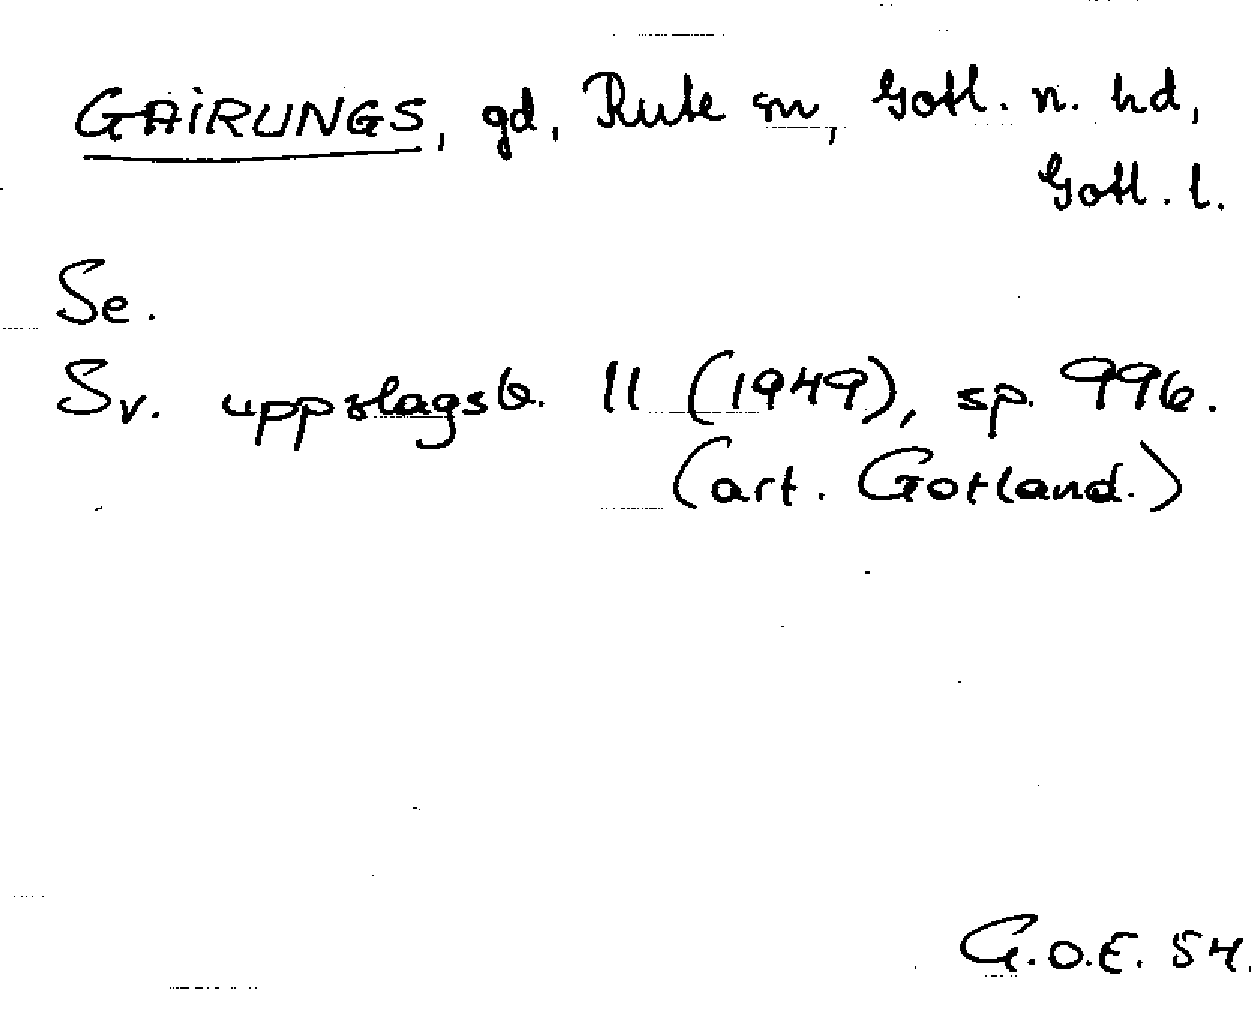 GAIRUNGS, gd, Rute sn, Gotl. n. hd,
Gotl. l.
Se.
Sv. uppslagsb. 11 (1949), sp. 996.
(art. Gotland.)
G.O.E. 54.